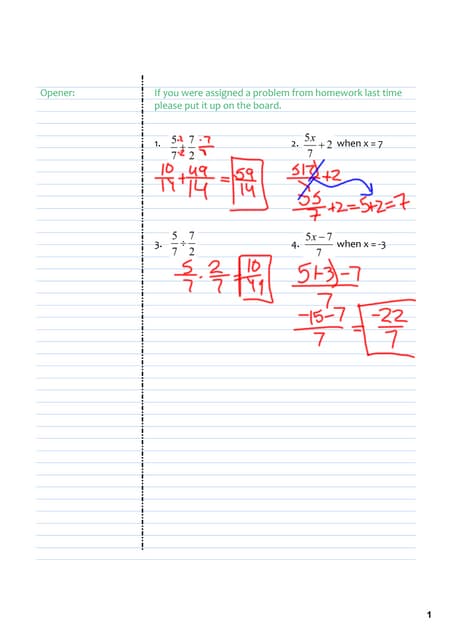 Opener:
If you were assigned a problem from homework last time
please put it up on the board.
1. 5/7 ·2/·2 + 7/2 ·7/7
10/14 + 49/14 = 59/14
2. 5x/7 + 2 when x = 7
5(7)/7 + 2
35/7 + 2 = 5+2 = 7
3. 5/7 ÷ 7/2
5/7 · 2/7 = 10/49
4. 5x − 7/7 when x = -3
5(-3)-7/7
-15-7/7 = -22/7
1